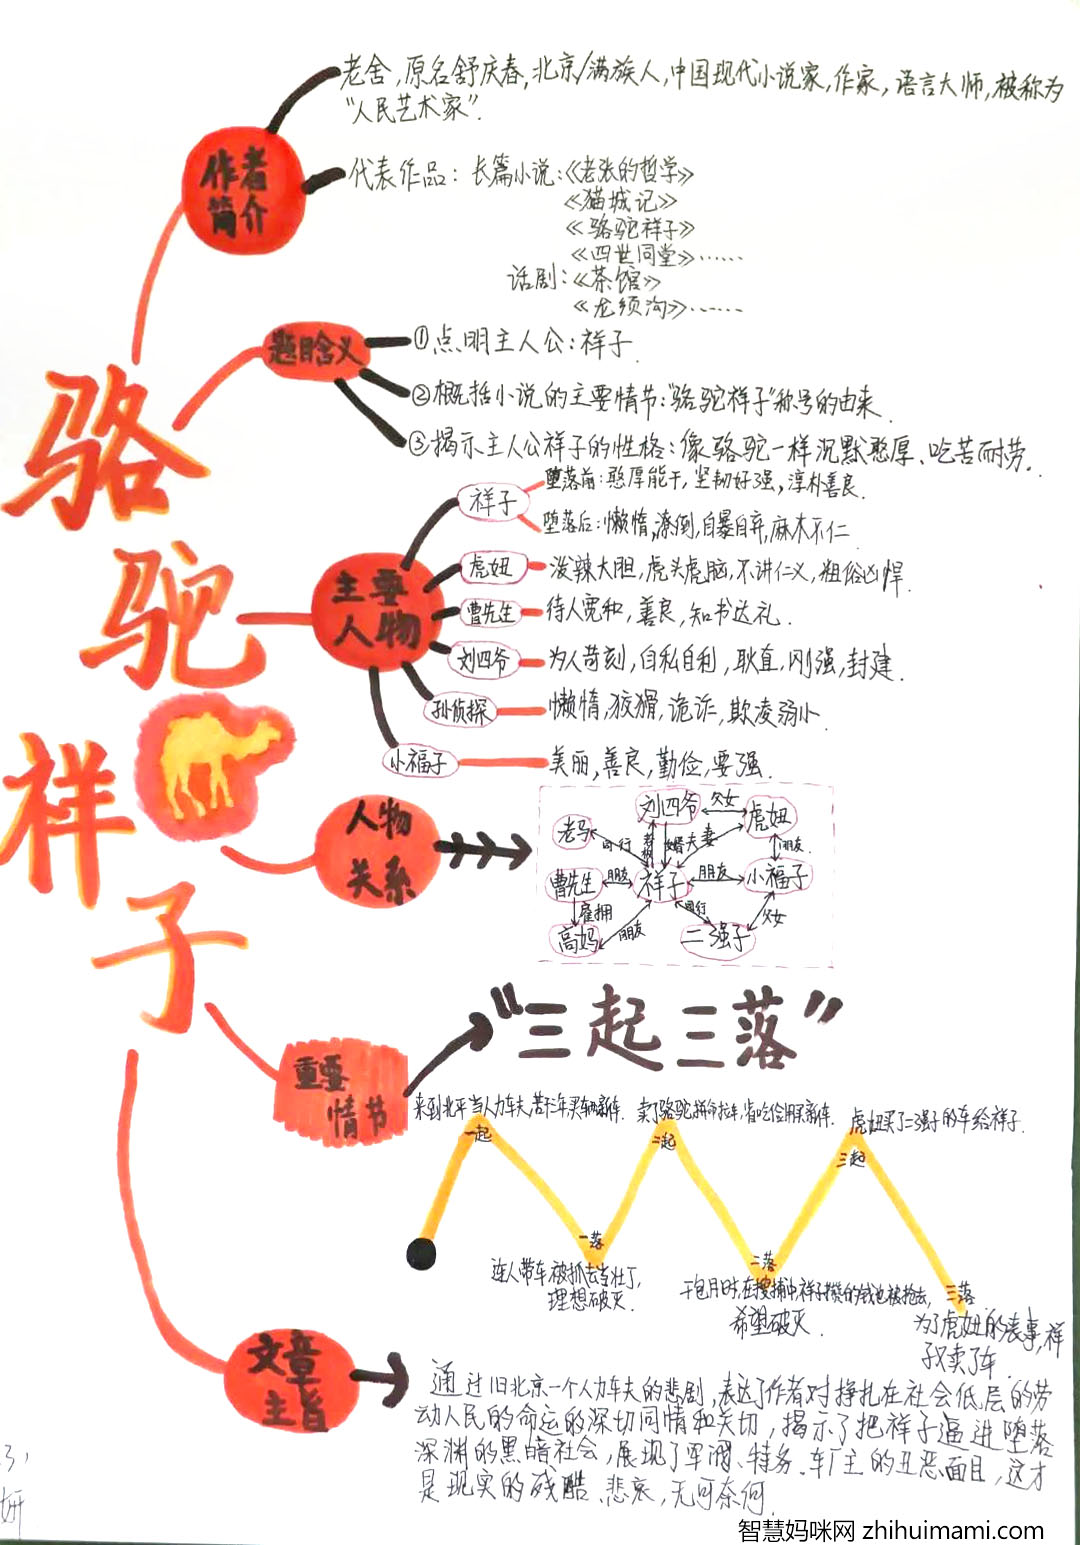 骆
驼
祥
子
作者
简介
老舍,原名舒庆春,北京/满族人,中国现代小说家,作家,语言大师,被称为
"人民艺术家".
代表作品:长篇小说:《老张的哲学》
《猫城记》
《骆驼祥子》
《四世同堂》……
话剧:《茶馆》
《龙须沟》……
题目含义
①点明主人公:祥子.
②概括小说的主要情节:"骆驼祥子"称号的由来.
③揭示主人公祥子的性格:像骆驼一样沉默憨厚、吃苦耐劳.
主要
人物
祥子
堕落前:憨厚能干,坚韧好强,淳朴善良.
堕落后:懒惰,潦倒,自暴自弃,麻木不仁
虎妞
泼辣大胆,虎头虎脑,不讲仁义,粗俗凶悍
曹先生
待人宽和,善良,知书达礼.
刘四爷
为人苛刻,自私自利,耿直,刚强,封建.
孙侦探
懒惰,狡猾,诡诈,欺凌弱小.
小福子
美丽,善良,勤俭,要强.
人物
关系
刘四爷
父女
虎妞
老马
同行
夫妻
朋友
曹先生
朋友
祥子
朋友
小福子
雇拥
高妈
朋友
同行
二强子
父女
重要
情节
"三起三落"
来到北平当人力车夫,苦干三年买车辆新车.
卖了骆驼拼命拉车,省吃俭用买新车.
虎妞买了二强子的车给祥子.
一起
二起
三起
一落
二落
三落
连人带车被抓去当壮丁,
理想破灭.
干包月时,在搜捕中祥子攒的钱也被抢去,
希望破灭.
为了虎妞的丧事,祥
子又卖了车.
文章
主旨
通过旧北京一个人力车夫的悲剧,表达了作者对挣扎在社会低层的劳
动人民的命运的深切同情和关切,揭示了把祥子逼进堕落
深渊的黑暗社会,展现了军阀、特务、车厂主的丑恶面目,这才
是现实的残酷、悲哀,无可奈何.
妍
智慧妈咪网 zhihuimami.com